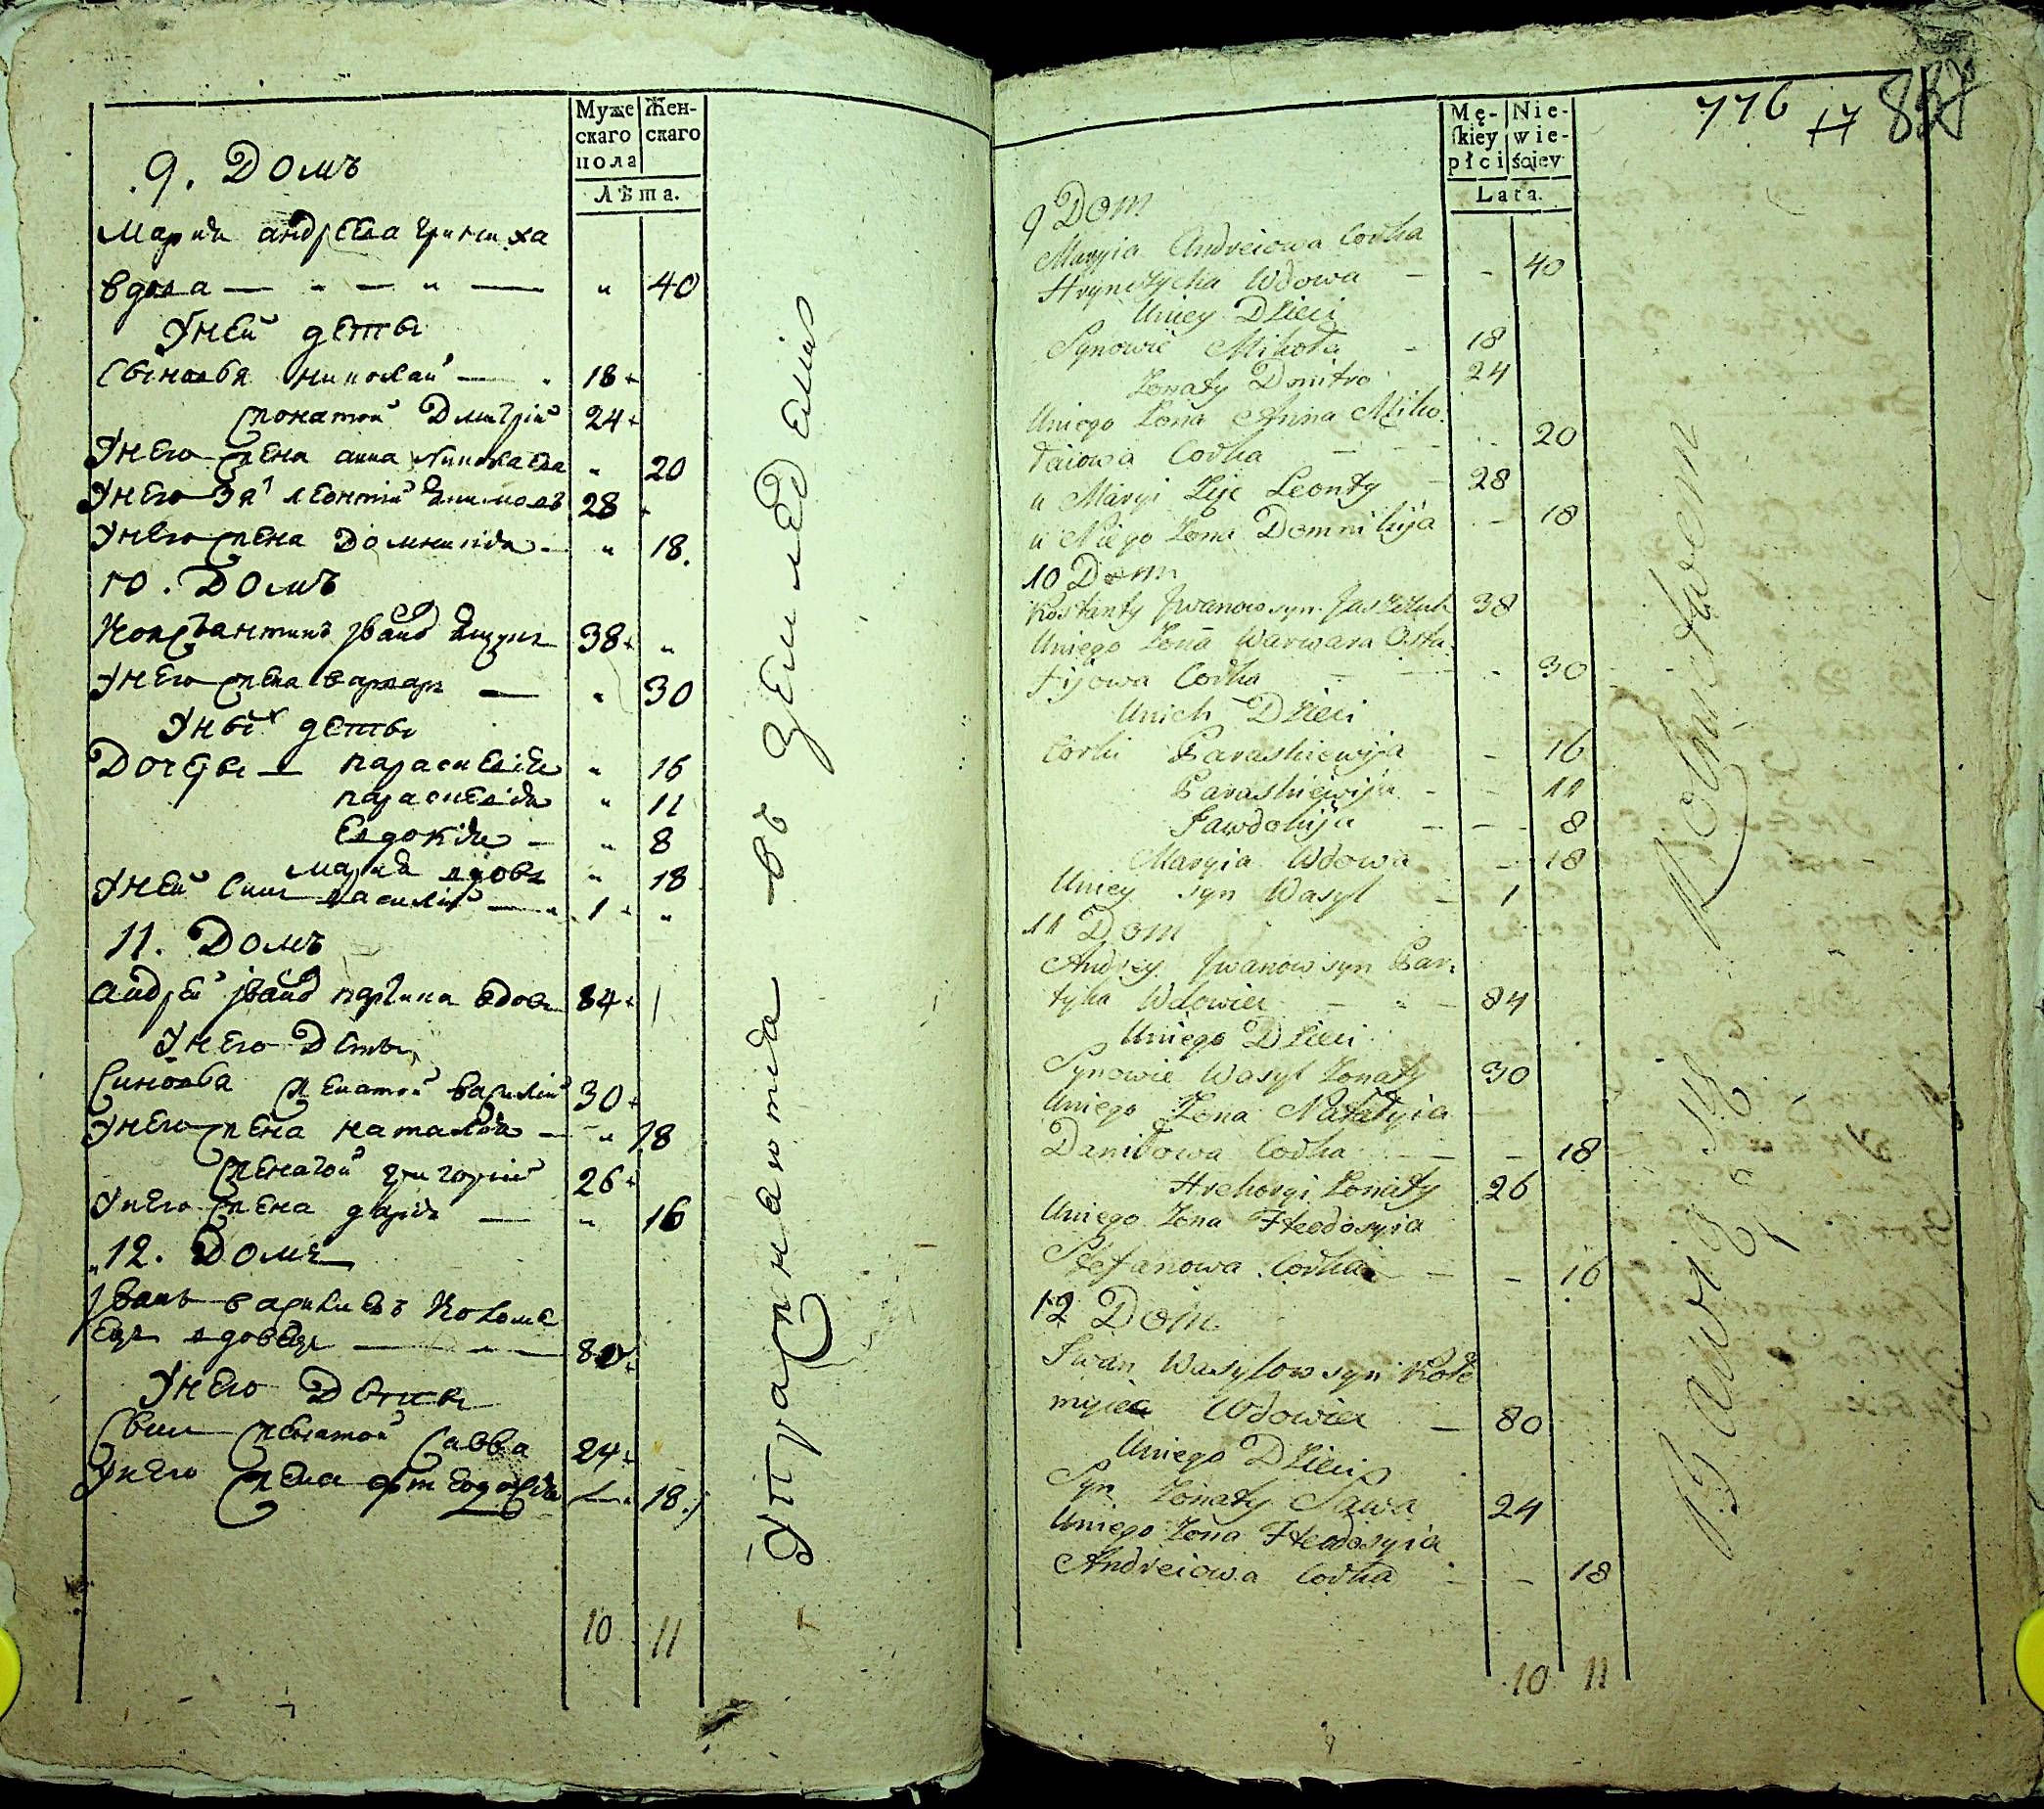 Муже
скаго
пола
Жен-
скаго
Лѣта.
.9. Домъ
Мария андреева
вдова — " — " — " 40
Унеи дети
Синовья николаи — 18
жонатои Дмитрiи 24
Унего жена анна николаева " 20
Унего зят леонтiи 28
Унего жена Домникiя — " 18.
10. Домъ
Константинъ Iвано 38 "
Унего жена варвара — " 30
Уних дети
Дочери — параскевiя " 16
параскевiя " 11
Евдокiя — " 8
мария вдова " 18
Унеи син василiи — 1 "
11. Домъ
андреи Iвано партика вдове 84
Унего Дети
Синовья женатои василiи 30
Унего жена наталiя — " 18
женатои григорiи 26
Унего жена дария — " 16
"12. Домъ
Iванъ василиевъ Коломе
ецъ вдовец — 80
Унего Дети
Син женатои савва 24
Унего жена фтеодосiя 18.
10 11
Упражняютця въ земледелии
776 17
Mę-
ſkiey
płci
Nie-
wie-
ściey
Lata.
9 Dom
Maryia Andreiowa Corka
Hrynczycha Wdowa — - 40
Uniey Dzieci
Synowie Mikoła - 18
Zonaty Dmitro 24
Uniego Zona Anna Miko.
łaiowa Corka — - - 20
u Maryi Zięć Leonty - 28
u Niego Zona Domnikija - 18
10 Dom
Kostanty Jwanow syn Jaszczuk 38
Uniego Zona Warwara Osta.
fijowa Corka — - 30
Unich Dzieci
Corki Paraskiewija - 16
Paraskiewija - - 11
Jawdokija — - 8
Maryia Wdowa - 18
Uniey syn Wasyl - 1
11 Dom
Andrey Jwanow syn Par.
tyka Wdowiec — " — 84
Uniego Dzieci
Synowie Wasyl Zonaty 30
Uniego Zona Natalyia
Daniłowa Corka - — - 18
Hrehory Zonaty 26
Uniego Zona Fteodosyia
Stefanowa Corka — - 16
12 Dom
Iwan Wasylow syn Koło
myiec Wdowiec — 80
Uniego Dzieci
Syn Zonaty Sawa 24
Uniego Zona Fteodosyia
Andreiowa Corka - - 18
10 11
Bawią się Rolnictwem